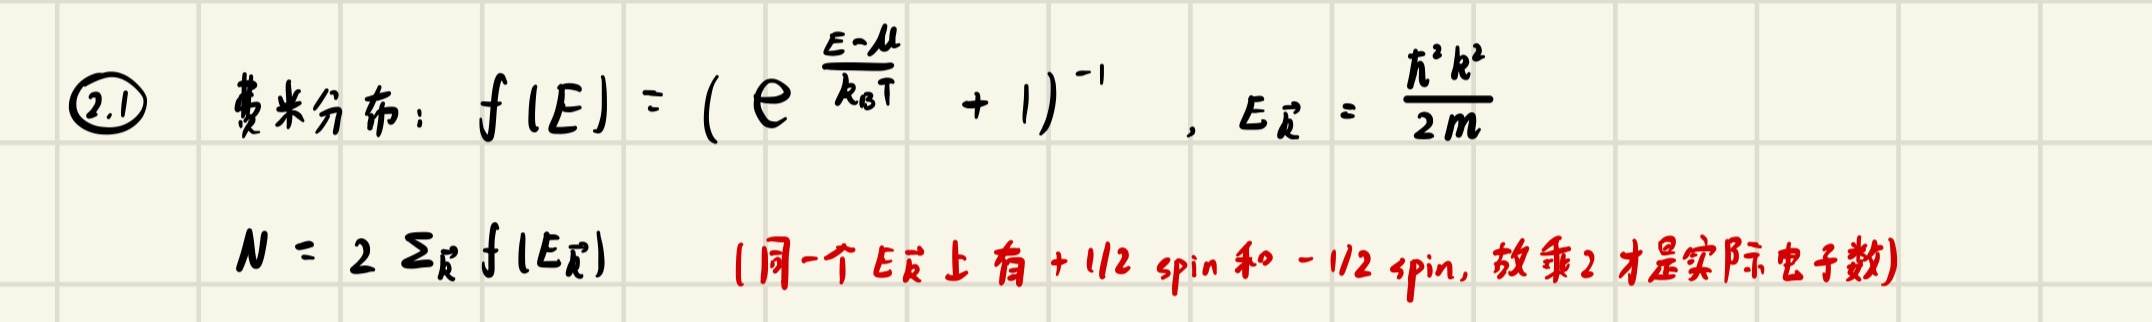 2.1 费米分布: f(E) = (e^{\frac{E-μ}{k_BT}} + 1)^{-1} , E_{\vec{k}} = \frac{ħ^2k^2}{2m}
N = 2 Σ_{\vec{k}} f(E_{\vec{k}}) (同一个 E_{\vec{k}} 上有 +1/2 spin 和 -1/2 spin, 故乘2才是实际电子数)